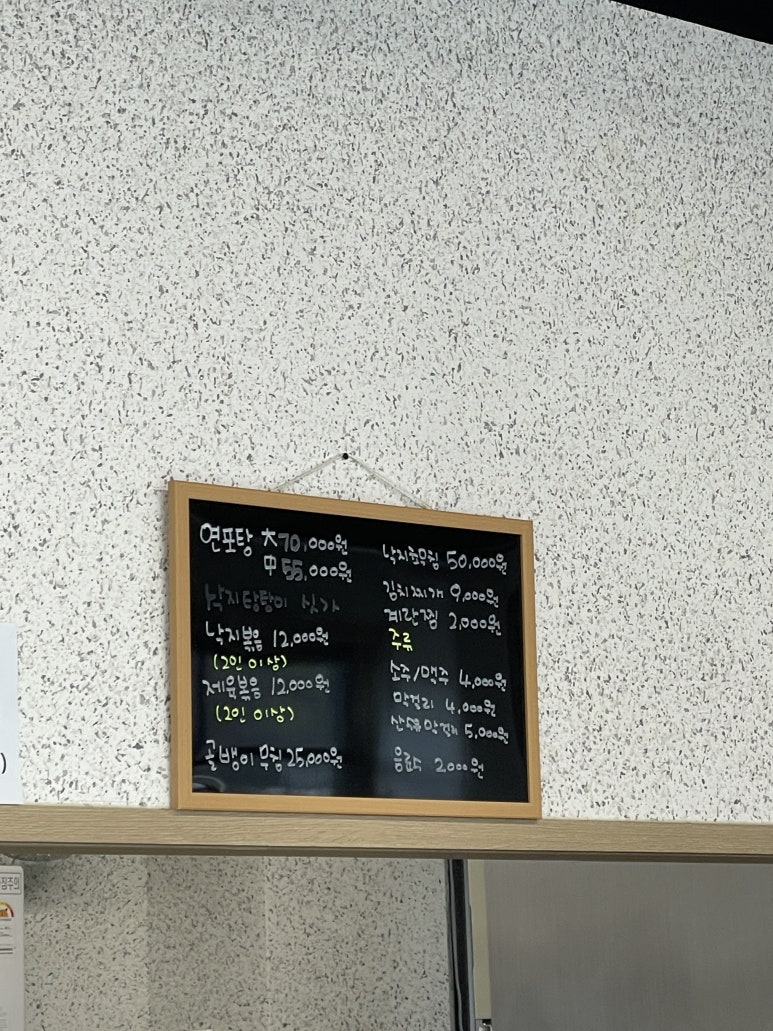 연포탕 大 70,000원
中 55,000원
낙지탕탕이 싯가
낙지볶음 12,000원
(2인 이상)
제육볶음 12,000원
(2인 이상)
골뱅이 무침 25,000원
낙지초무침 50,000원
김치찌개 9,000원
계란찜 2,000원
주류
소주/맥주 4,000원
막걸리 4,000원
산수유막걸리 5,000원
음료수 2000원
)